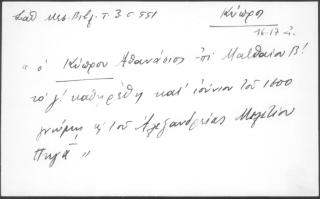 Σαθ. Μεσ. Βιβλ. Τ. 3 σ 551
Κύπρος
16-17 αἰ.
" ὁ Κύπρου Ἀθανάσιος ἐπὶ Ματθαίου Β'
τὸ γ' καθῃρέθη κατ' ἰούνιον τοῦ 1600
γνώμῃ κ τοῦ Ἀλεξανδρείας Μελετίου
Πηγᾶ "